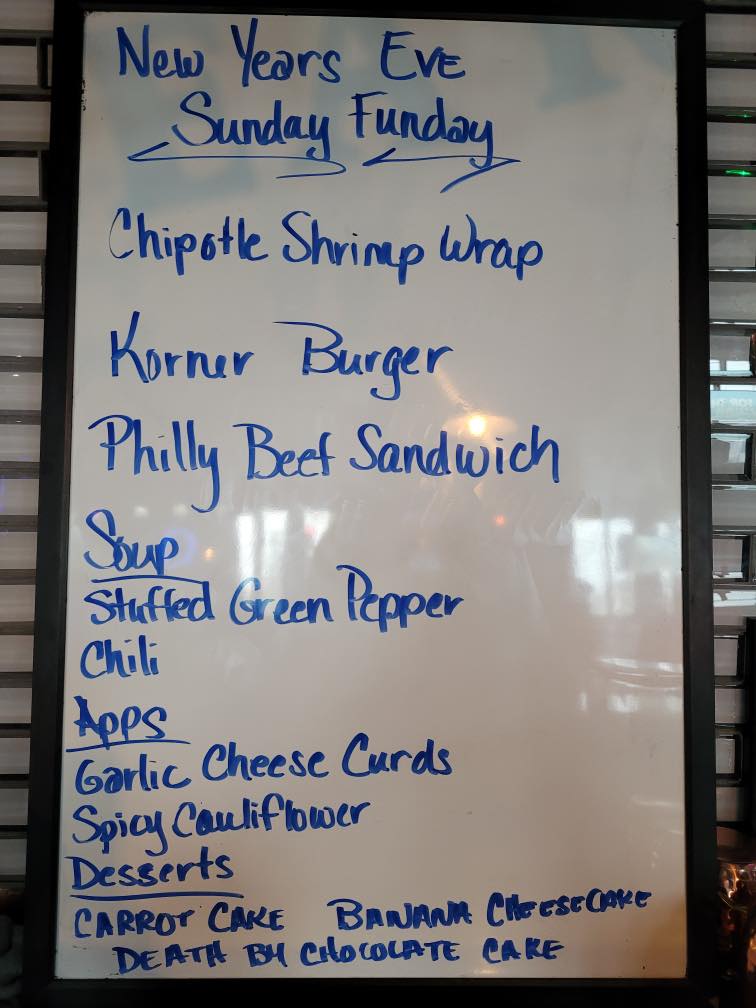 New Years Eve
Sunday Funday
Chipotle Shrimp Wrap
Korner Burger
Philly Beef Sandwich
Soup
Stuffed Green Pepper
Chili
Apps
Garlic Cheese Curds
Spicy Cauliflower
Desserts
CARROT CAKE BANANA CHEESECAKE
DEATH BY CHOCOLATE CAKE